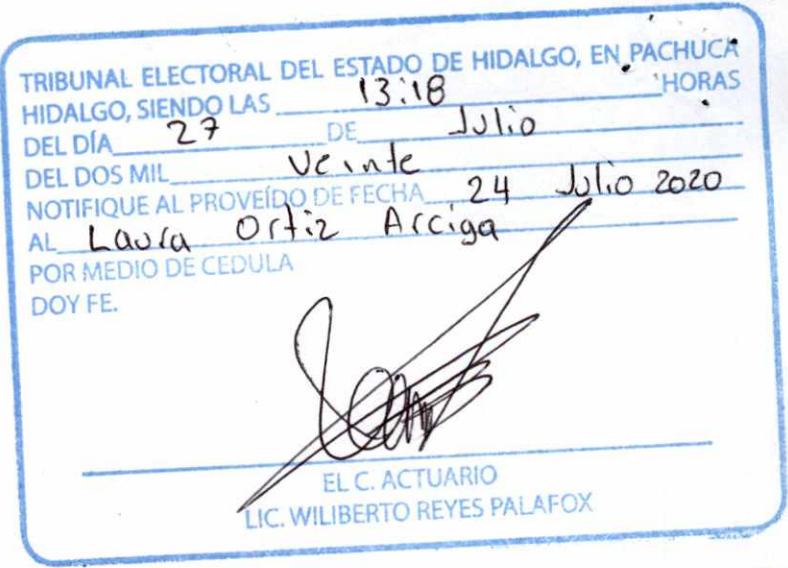 TRIBUNAL ELECTORAL DEL ESTADO DE HIDALGO, EN PACHUCA
HIDALGO, SIENDO LAS 13:18 HORAS
DEL DÍA 27 DE Julio
DEL DOS MIL Veinte
NOTIFIQUE AL PROVEÍDO DE FECHA 24 Julio 2020
AL Laura Ortiz Arciga
POR MEDIO DE CEDULA
DOY FE.
EL C. ACTUARIO
LIC. WILIBERTO REYES PALAFOX